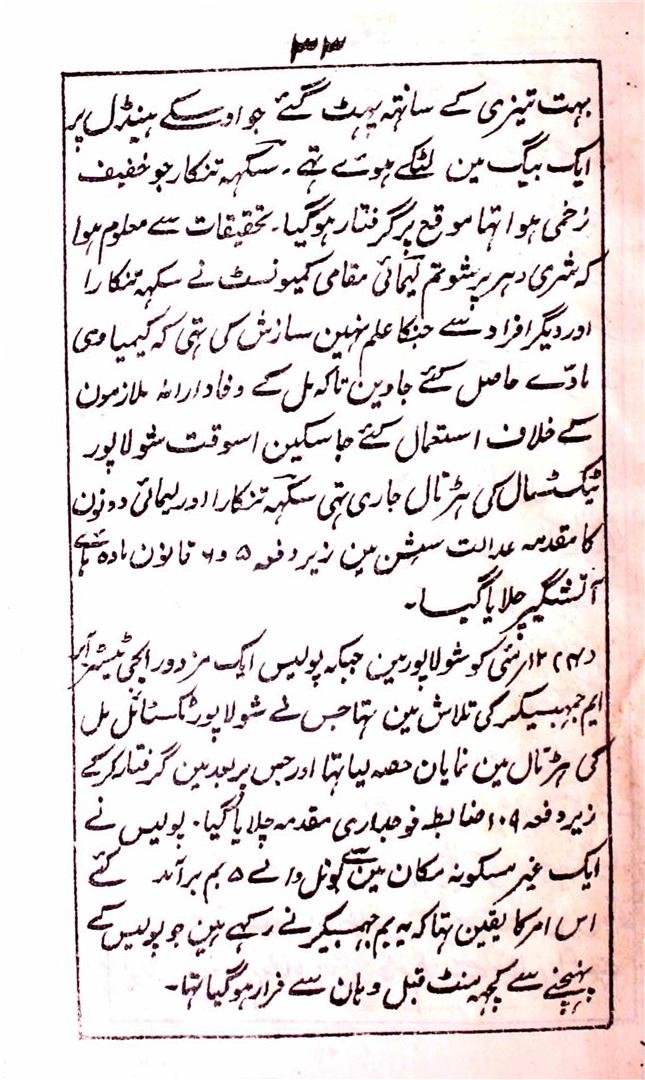 ۳۳
بہت تیزی کے ساتھ پہٹ گئے جو اوسکے ہینڈل پر
ایک بیگ مین لٹکے ہوے تہے ۔ سکہہ تنکار جو خفیف
زخمی ہوا تہا موقع پر گرفتار ہوگیا۔ تحقیقات سے معلوم ہوا
کہ شری دہر پرشوتم لیمائی مقامی کمیونسٹ نے سکہہ تنکارا
اور دیگر افراد سے جنکا علم نہین سازش کی تہی کہ کیمیاوی
مادّے حاصل کئے جاوین تاکہ مل کے وفادارانہ ملازمون
کے خلاف استعمال کئے جاسکین اسوقت شولاپور
ٹیکسٹائل کی ہڑتال جاری تہی سکہہ تنکارا اور لیمائی دونون
کا مقدمہ عدالت سشن مین زیر دفعہ ۵ و ۶ قانون مادہ ہائے
آتشگیر چلایا گیا۔
۱۲ مئی کو شولاپور مین جبکہ پولیس ایک مزدور ایجی ٹیٹر آر
ایم جمبیگر کی تلاش مین تہا جس نے شولاپور ٹکسٹائل مل
کی ہڑتال مین نمایان حصہ لیا تہا اور جس پر بعد مین گرفتار کرکے
زیر دفعہ ۱۰۹ ضابطہ فوجداری مقدمہ چلایا گیا۔ پولیس نے
ایک غیر مسکونہ مکان مین سے والے ۵ بم برآمد کئے
اس امر کا یقین تہا کہ یہ بم جمبیگر نے رکہے ہین جو پولیس کے
پہنچنے سے کچہہ منٹ قبل وہان سے فرار ہوگیا تہا۔